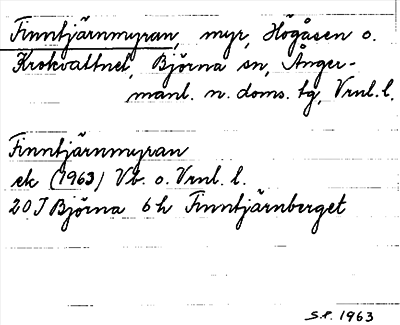 Finntjärnmyran, myr, Högåsen o.
Krokvattnet, Björna sn, Ånger-
manl. n. doms. tg, Vrnl. l.
Finntjärnmyran
ek (1963) Vb. o. Vrnl. l.
20 J Björna 6 h Finntjärnberget
S.P. 1963